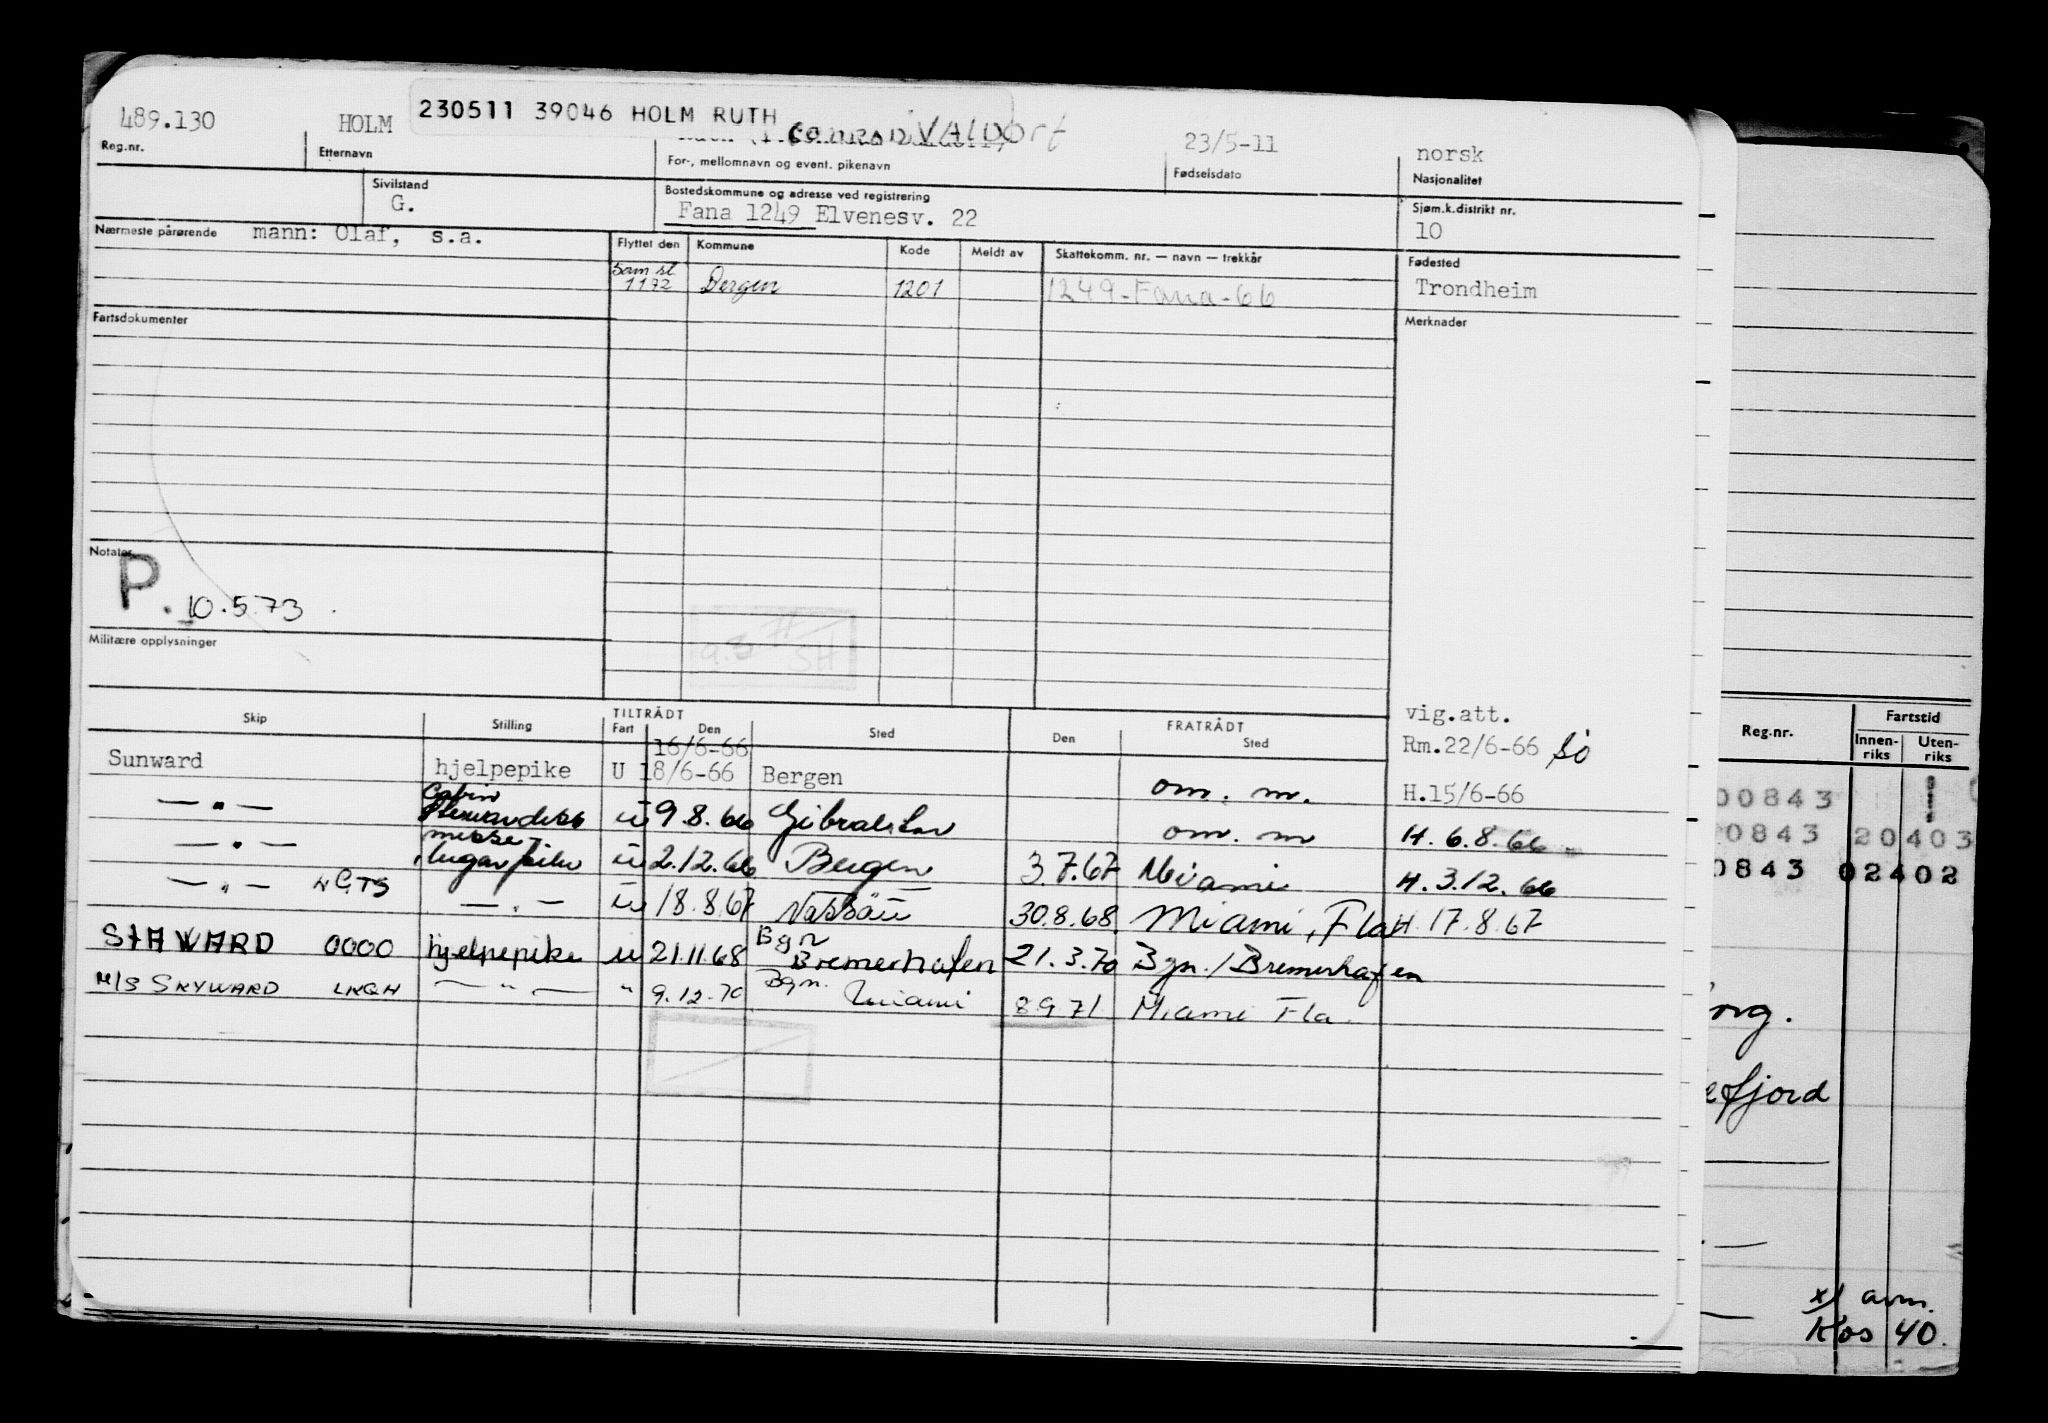 489.130 HOLM 230511 39046 HOLM RUTH
23/5-11 norsk
Reg.nr. Etternavn For-, mellomnavn og event. pikenavn Fødselsdato Nasjonalitet
Sivilstand Bostedskommune og adresse ved registrering Sjøm.k.distrikt nr.
G. Fana 1249 Elvenesv. 22 10
Nærmeste pårørende mann: Olaf, s.a. Flyttet den Kommune Kode Meldt av Skattekomm. nr. — navn — trekkår Fødested
Bergen 1201 1249-Fana-66 Trondheim
Fartsdokumenter Merknader
Notater
P. 10.5.73
Militære opplysninger
vig.att.
Skip Stilling TILTRÅDT Fart Den Sted FRATRÅDT Den Sted
16/6-66 Rm.22/6-66 Sö
Sunward hjelpepike U 18/6-66 Bergen om. m. H.15/6-66
— " — Cabin u 9.8.66 Gibraltar om. m H. 6.8.66
— " — messe- u 2.12.66 Bergen 3.7.67 Miami H. 3.12.66
lugarpike
— " — — " — u 18.8.67 Nassau 30.8.68. Miami, Fla H. 17.8.67
STARWARD 0000 hjelpepike u 21.11.68 Bgn Bremerhafen 21.3.70 Bgn./Bremerhafen
M/S SKYWARD LKQH — " — " 9.12.70 Bgn. Miami 8 9 71 Miami Fla.
Reg.nr. Fartstid
Innen-riks Uten-riks
00843
0843 20403
0843 02402
efjord
x) avm.
Kos 40.